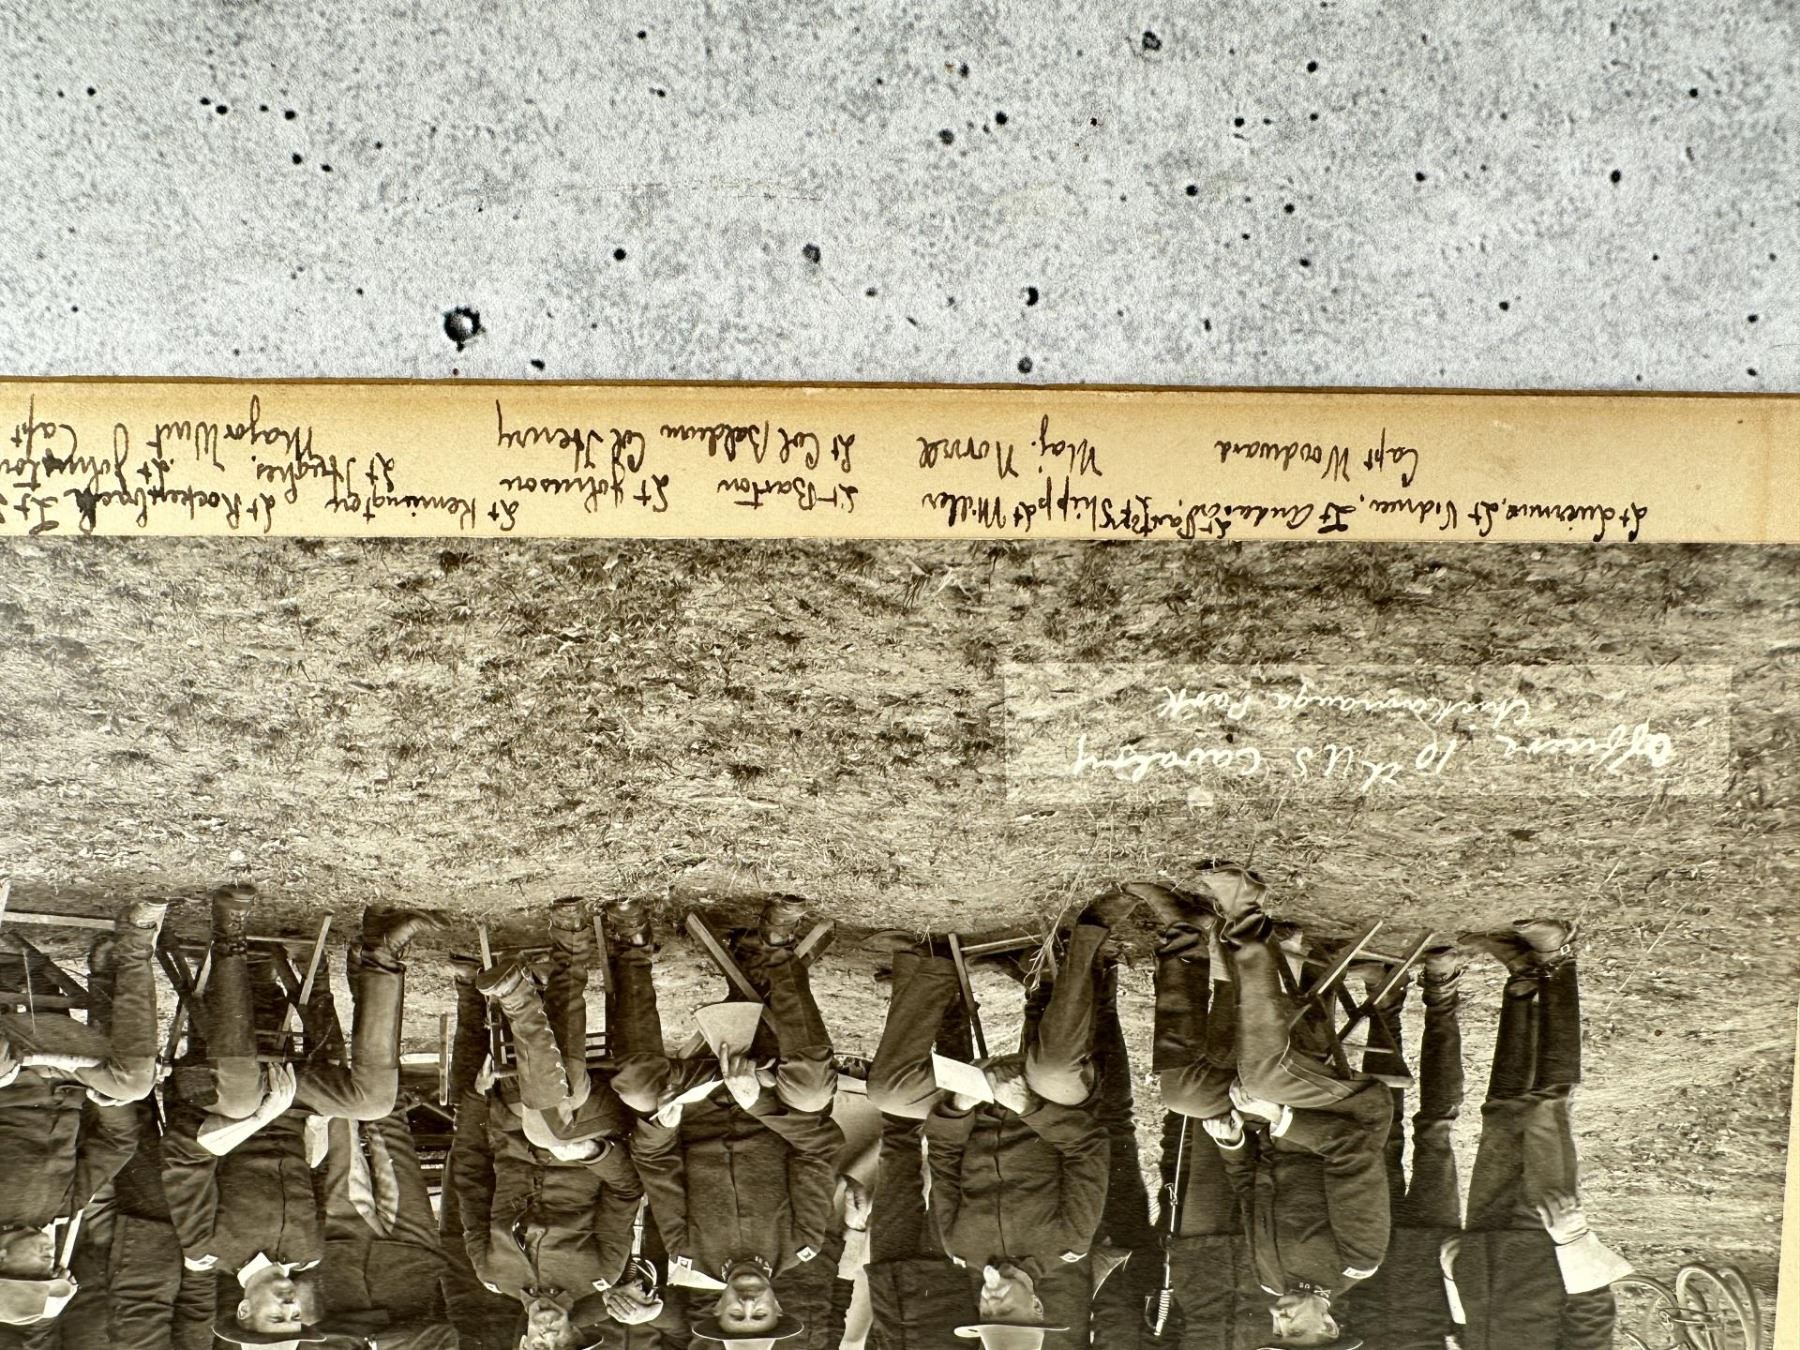 Officers 10th U S Cavalry
Chickamauga Park
Lt Livermore, Lt Vidmer, Lt Anderson, Lt Shipp Lt Miller Lt Barton Lt Johnson Lt Kennington Lt Rockenbach Lt
Lt Hughes. Lt Johnston
Capt Woodward Maj. Norvell Lt Col Baldwin Col Henry Major Wint Capt